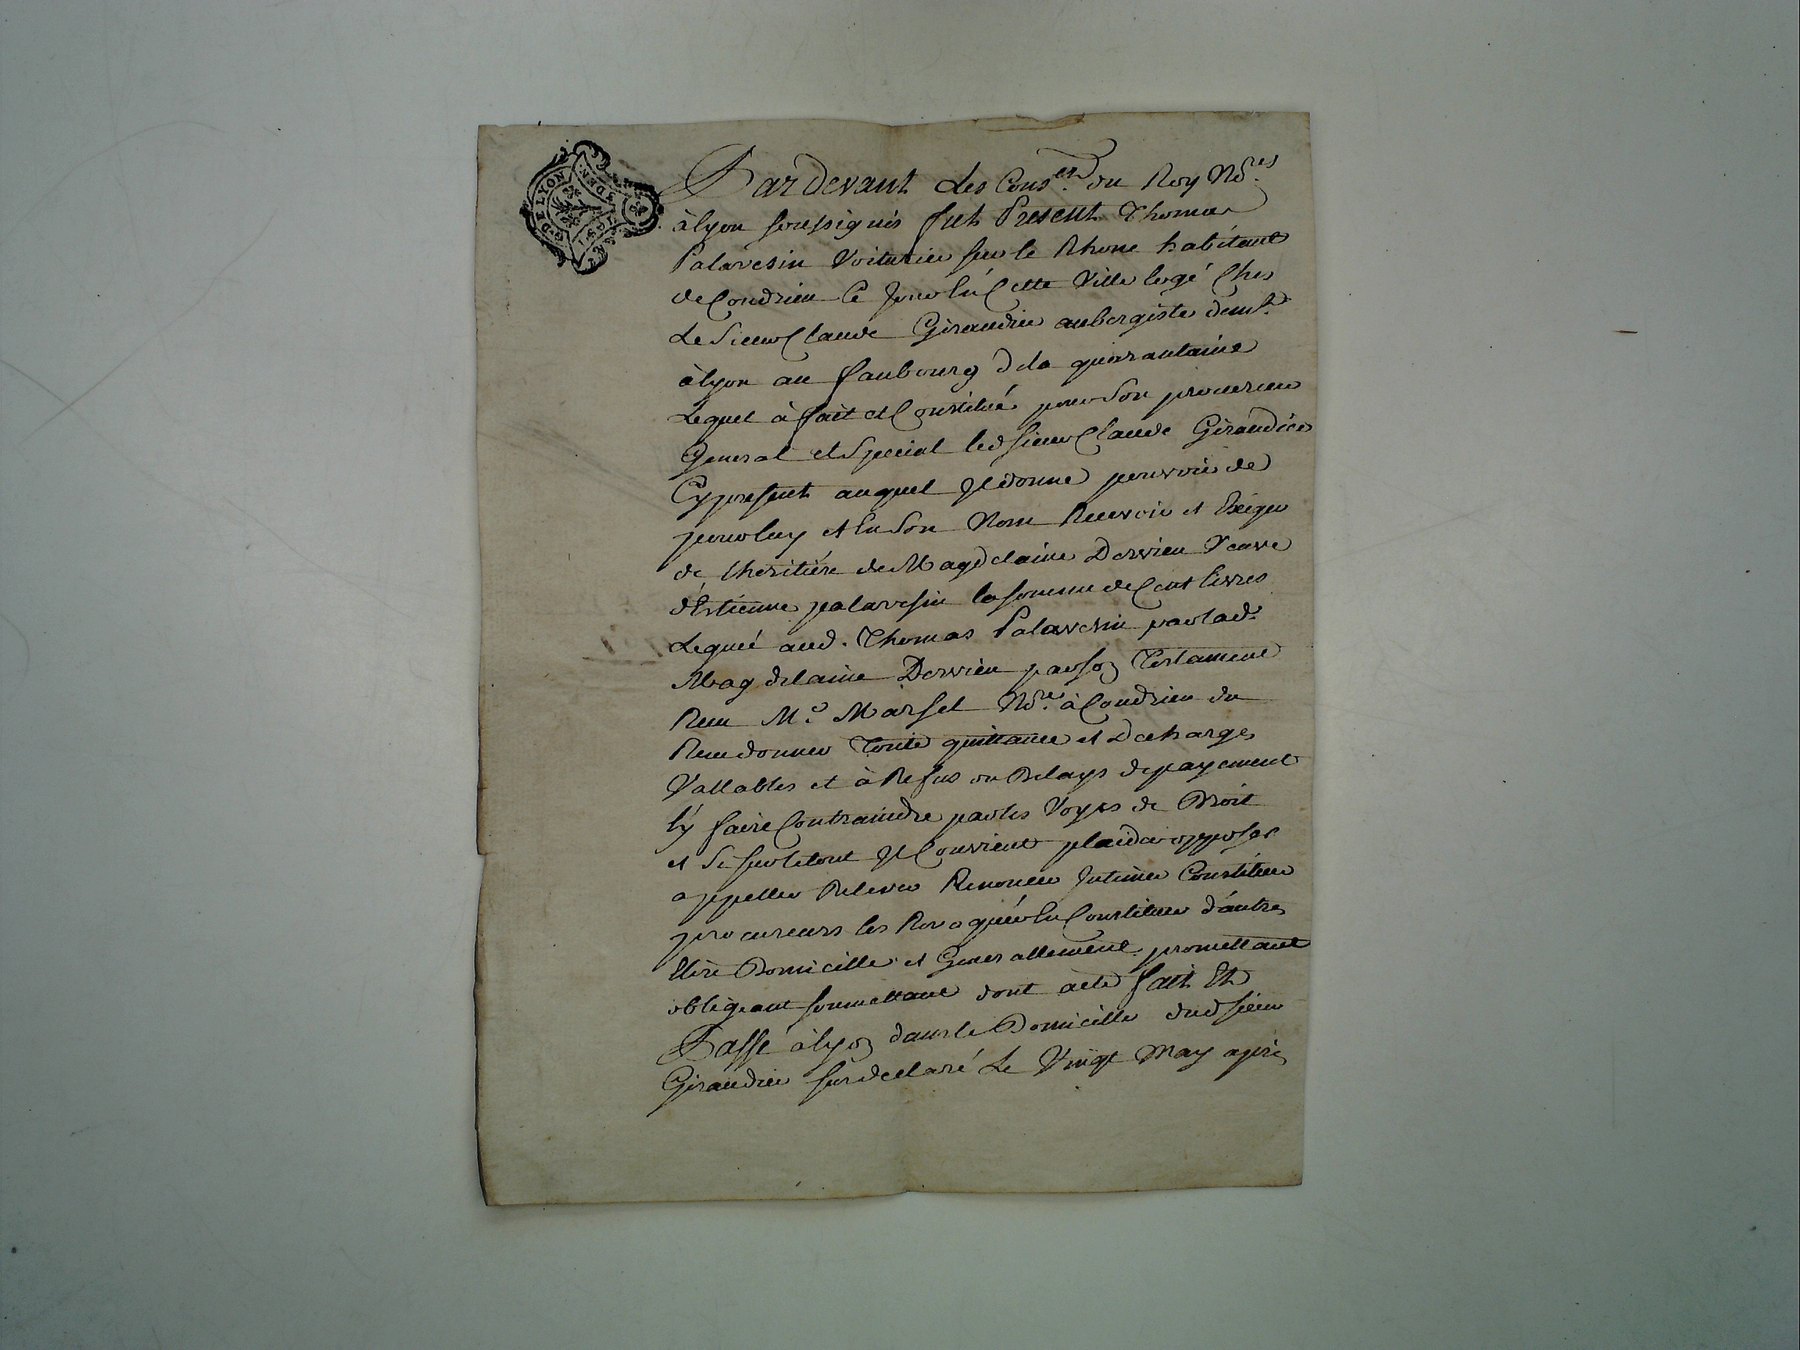 G. DE LYON
DEN.
Pardevant Les Cons.ers du Roy No.res
à lyon soussignés fut Present Thomas
Palavesin Voiturier sur le Rhone habitant
de Condrieu Ce Jour En Cette Ville logé Chés
Le Sieur Claude Giraudier aubergiste dem.t
à lyon au faubourg de la quarantaine
Lequel à fait et Constitué pour Son procureur
General et Special led sieur Claude Giraudier
Cy present auquel Il donne pouvoir de
pour luy et En Son Nom Recevoir et Exiger
de l'heritiére de Magdelaine Dervieu Veuve
d'Estienne palavesin la somme de Cent livres
Legué aud. Thomas Palavesin par lad.e
Magdelaine Dervieu par son Testament
Reçu M.e Marsel No.re à Condrieu du
Reçu donner Toute quittance et Decharges
Vallables et à Refus ou Delays de payement
l'y faire Contraindre par les Voyes de Droit
et Si sur le tout Il Convient plaider opposer
appeller Relever Renoncer Intimer Constituer
procureurs les Revoquer En Constituer d'autres
Elire Domicille et Generallement promettant
obligeant soumettant dont acte fait Et
Passé à lyon dans le Domicille dud sieur
Giraudier susdeclaré Le Vingt May après